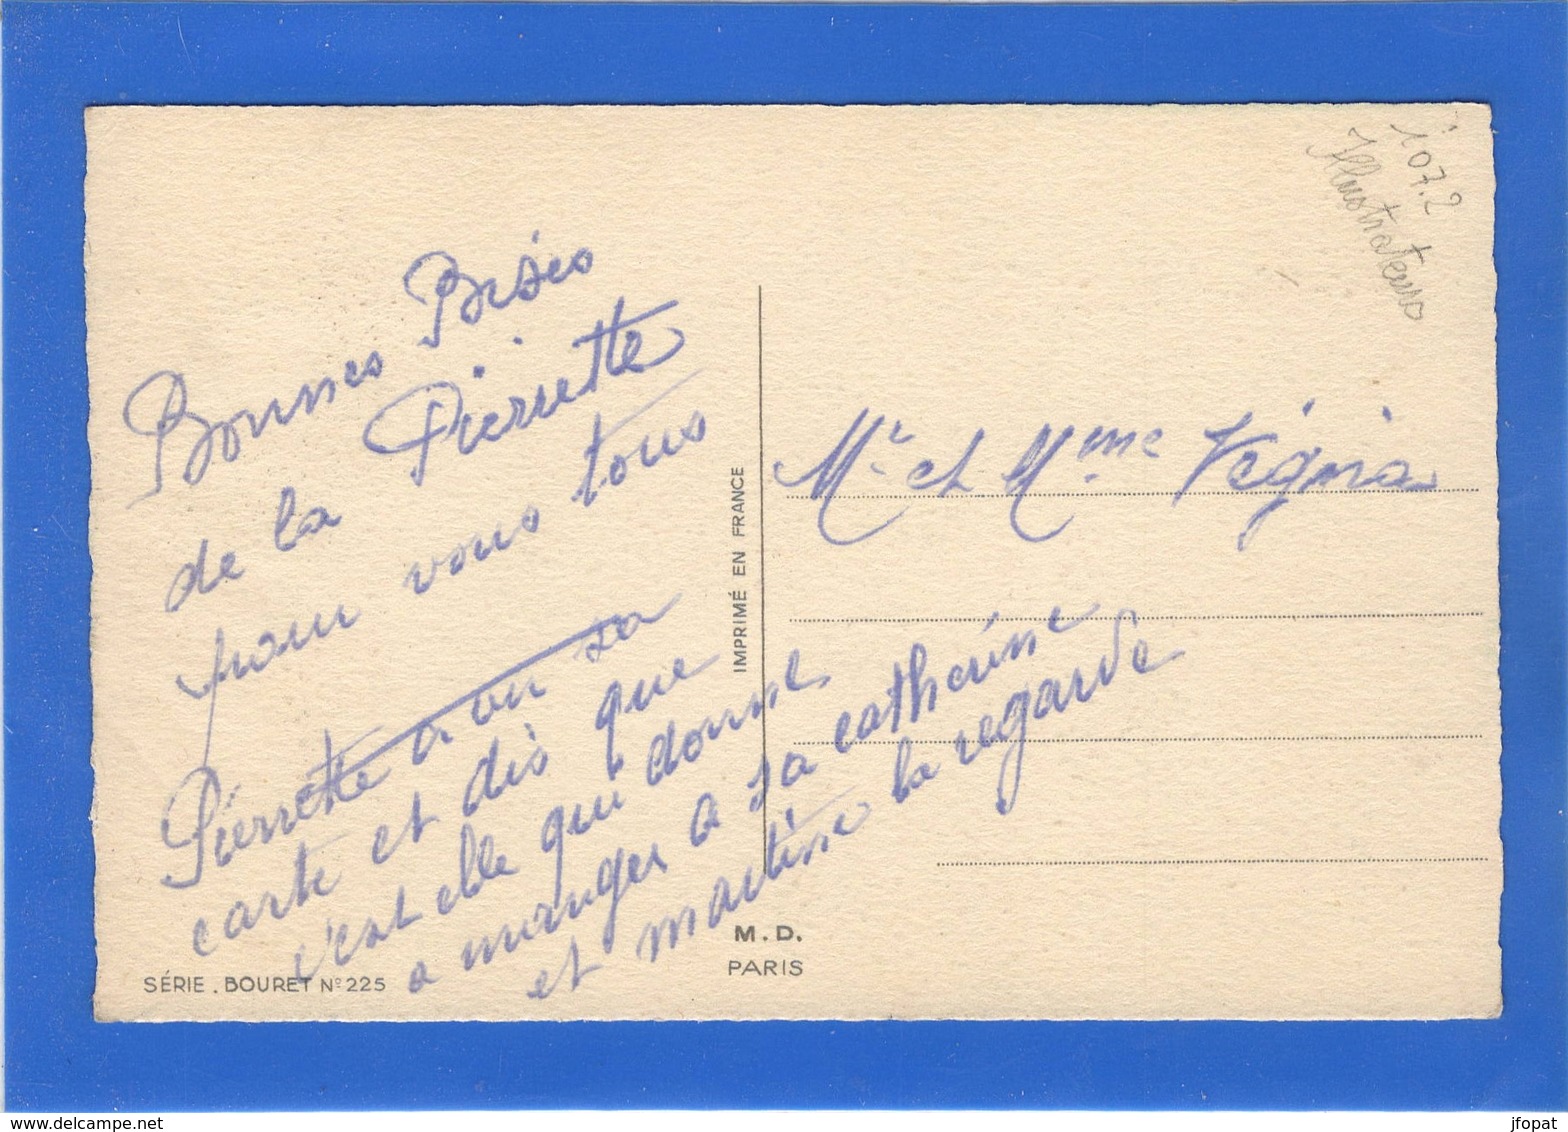 Bonnes Bises
de la Pierrette
pour vous tous
Pierrette a vu sa
carte et dis que
c'est elle qui donne
a manger a sa catherine
et martine la regarde
IMPRIMÉ EN FRANCE
M.D.
PARIS
SÉRIE. BOURET Nº 225
107.2
Illustrateurs
Mr et Mme
delcampe.net
jfopat